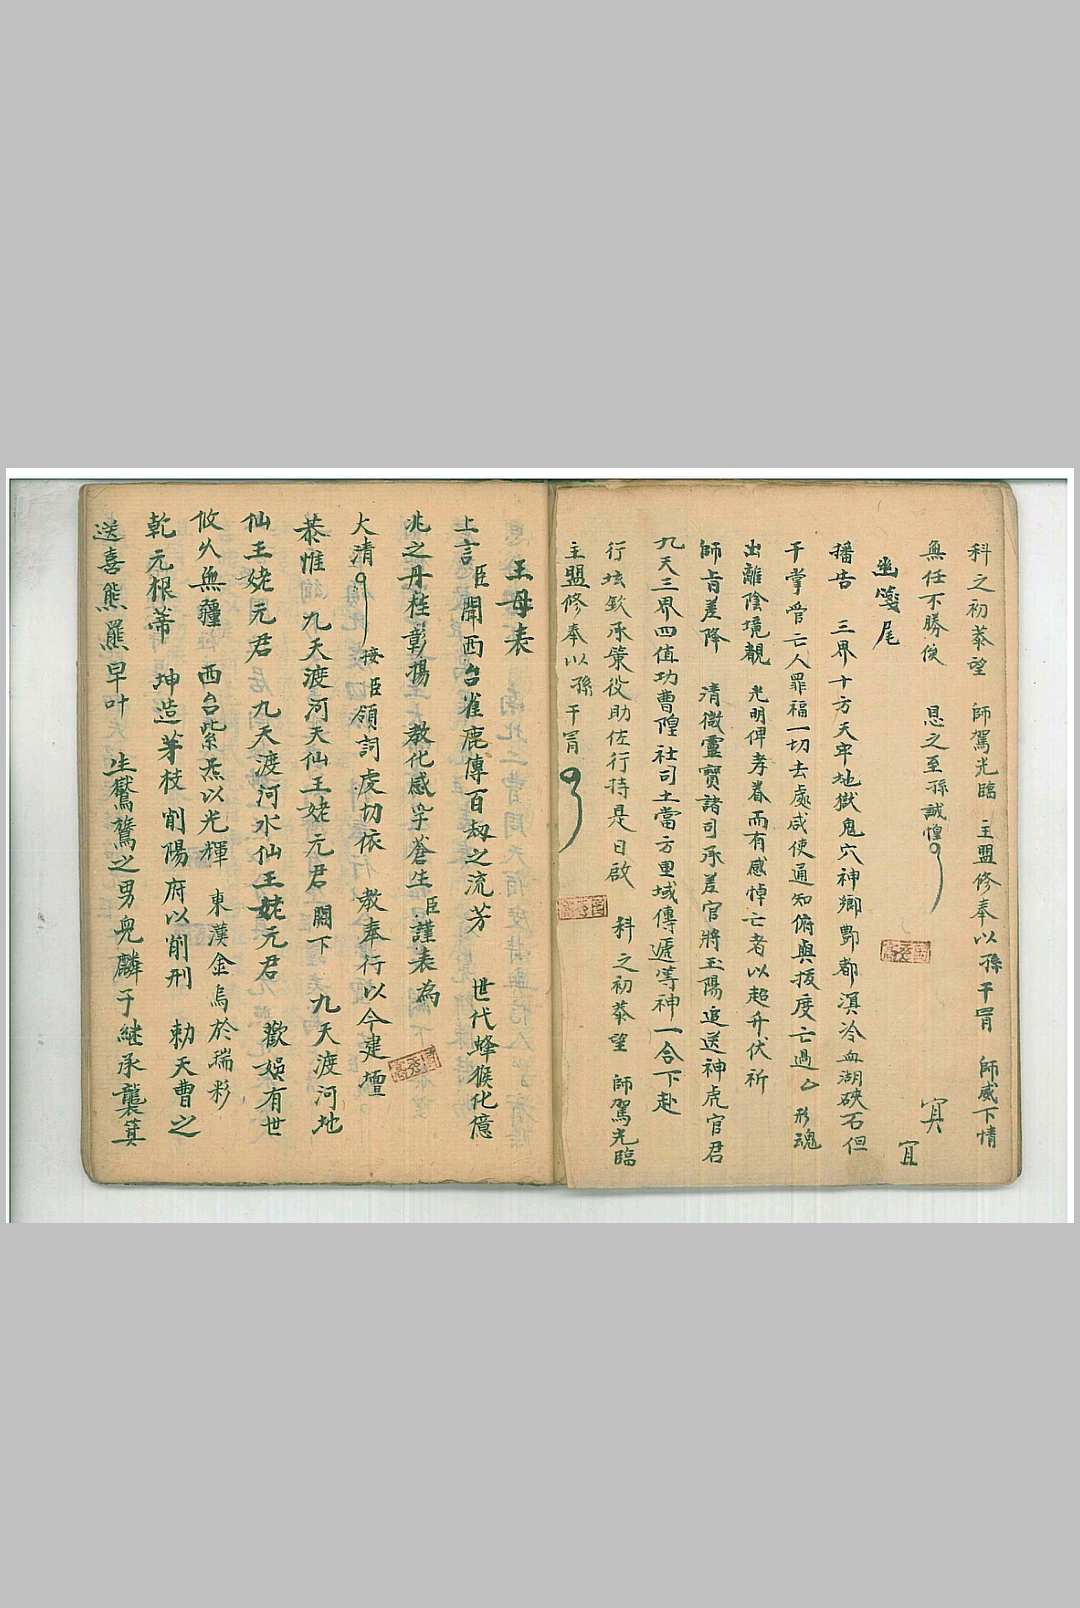 科之初恭望 師駕光臨 主盟修奉以孫干冒 師威下情
無任不勝 恩之至孫誠惶
幽箋尾
播告 三界十方天牢地獄鬼穴神鄉酆都溟冷血湖硤石但
干掌管亡人罪福一切去處咸使通知俯與拔度亡過厶 形魂
出離陰境覩 光明俾孝眷而有感悼亡者以超升伏祈
師旨差降 清微靈寶諸司承差官將玉陽追送神虎官君
九天三界四值功曹隍社司土當方里域傳遞等神一合下赴
行壇欽承策役助佐行持是日啟 科之初恭望 師駕光臨
主盟修奉以孫干冒
王母表
上言臣聞西台雀鹿傳百劫之流芳 世代蜂猴化億
兆之丹桂彰揚 教化感孚蒼生臣謹表為
大清 按臣領詞虔切依 教奉行以今建壇
恭惟 九天渡河天仙王姥元君闕下 九天渡河地
仙王姥元君 九天渡河水仙王姥元君 歡娛有世
攸久無疆 西台紫炁以光輝 東漢金烏於瑞彩
乾元根蒂 坤造茅枝削陽府以削刑 勅天曹之
送喜熊羆早叶 生鸑鷟之男兒麟子継承襲箕